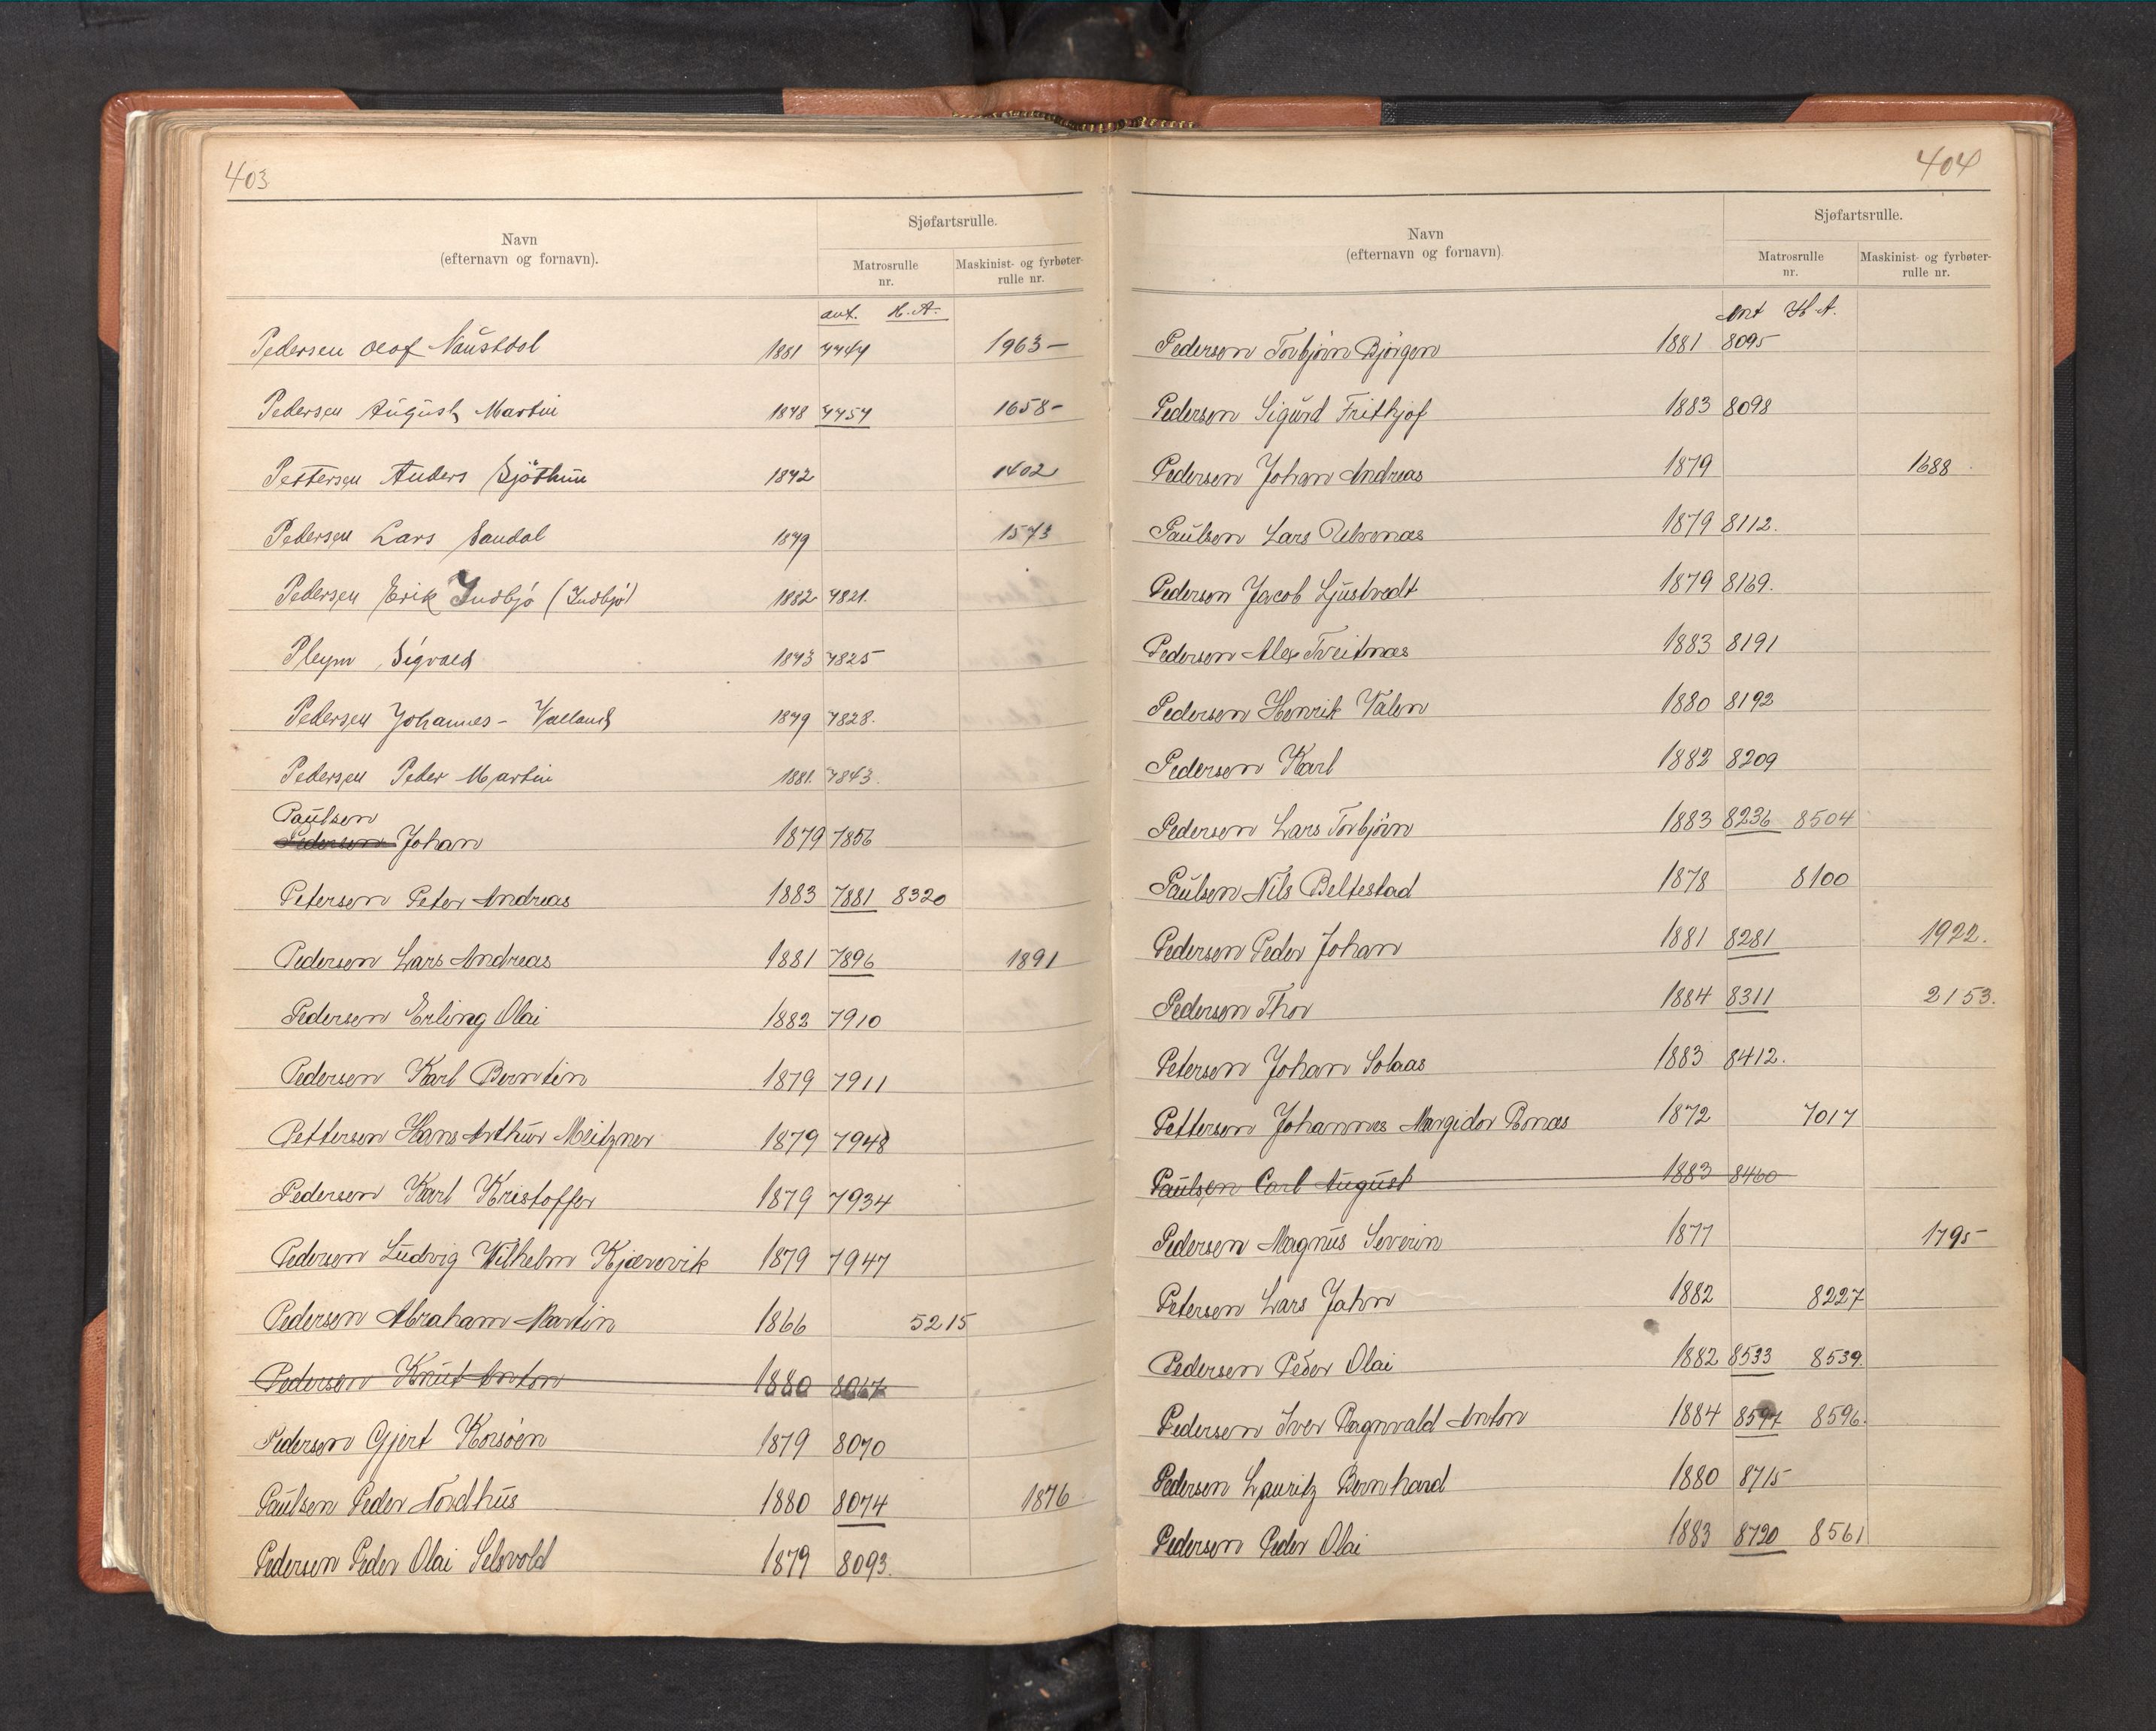 403
Navn
(efternavn og fornavn).
Sjøfartsrulle.
Matrosrulle
nr.
Maskinist- og fyrbøter-
rulle nr.
ant. H. A.
Pedersen Olof Naustdal 1881 7747 1963-
Pedersen August Martin 1878 7757 1658-
Pettersen Anders Sjøthun 1872 1402
Pedersen Lars Sandal 1879 1573
Pedersen Erik Indbjø (Indbjø) 1882 7821.
Pleym Sigvald 1873 7825
Pedersen Johannes - Valland 1879 7828.
Pedersen Peder Martin 1881. 7843.
Paulsen
Pedersen Johan 1879 7856
Petersen Peter Andreas 1883 7881 8320
Pedersen Lars Andreas 1881 7896 1891
Pedersen Erling Olai 1882 7910
Pedersen Karl Berntin 1879 7911
Pettersen Hans Arthur Meitzner 1879 7948
Pedersen Karl Kristoffer 1879 7934
Pedersen Ludvig Wilhelm Kjærevik 1879 7947
Pedersen Abraham Martin 1866 5215
Pedersen Knut Anton 1880 8067
Pedersen Gjert Korsøen 1879 8070
Paulsen Peder Nordhus 1880 8074 1876
Pedersen Peder Olai Selsvold 1879 8093.
404
Navn
(efternavn og fornavn)
Sjøfartsrulle.
Matrosrulle
nr.
Maskinist- og fyrbøter-
rulle nr.
Ant H. A.
Pedersen Torbjørn Bjørgen 1881 8095
Pedersen Sigurd Frithjof 1883 8098
Pedersen Johan Andreas 1879 1688
Paulsen Lars Ulvenæs 1879 8112.
Pedersen Jacob Ljustvedt 1879 8169.
Pedersen Alex Tveitnæs 1883 8191
Pedersen Henrik Valen 1880 8192
Pedersen Karl 1882 8209
Pedersen Lars Torbjørn 1883 8236 8504
Paulsen Nils Beltestad 1878 8100
Pedersen Peder Johan 1881 8281 1922.
Pedersen Thor 1884 8311 2153.
Petersen Johan Solaas 1883 8412.
Pettersen Johannes Margidor 1872 7017
Paulsen Carl August 1883 8460
Pedersen Magnus Severin 1877 1795
Petersen Lars Jahn 1882 8227
Pedersen Peder Olai 1882 8533 8539.
Pedersen Iver Ragnvald Anton 1884 8597 8596.
Pedersen Lauritz Bernhard 1880 8715
Pedersen Peder Olai 1883 8720 8561